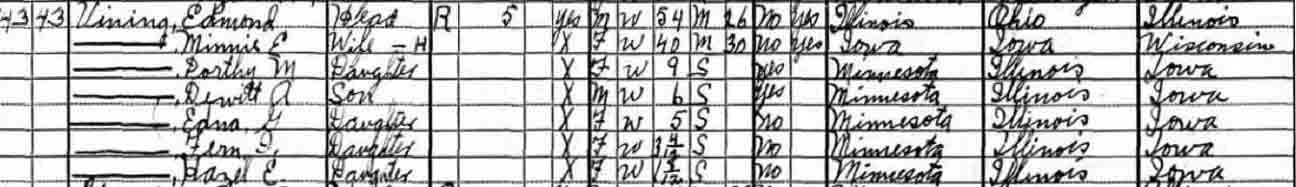 43 43 Vining, Edmond Head R 5 yes M W 54 M 26 No yes Illinois Ohio Illinois
———, Minnie E Wife – H X F W 40 M 30 no yes Iowa Iowa Wisconsin
———, Dorthy M Daughter X F W 9 S yes Minnesota Illinois Iowa
———, Dewitt A Son X M W 6 S yes Minnesota Illinois Iowa
———, Edna G Daughter X F W 5 S no Minnesota Illinois Iowa
———, Fern Daughter X F W 3 4/12 S No Minnesota Illinois Iowa
———, Hazel E. Daughter X F W S no Minnesota Illinois Iowa